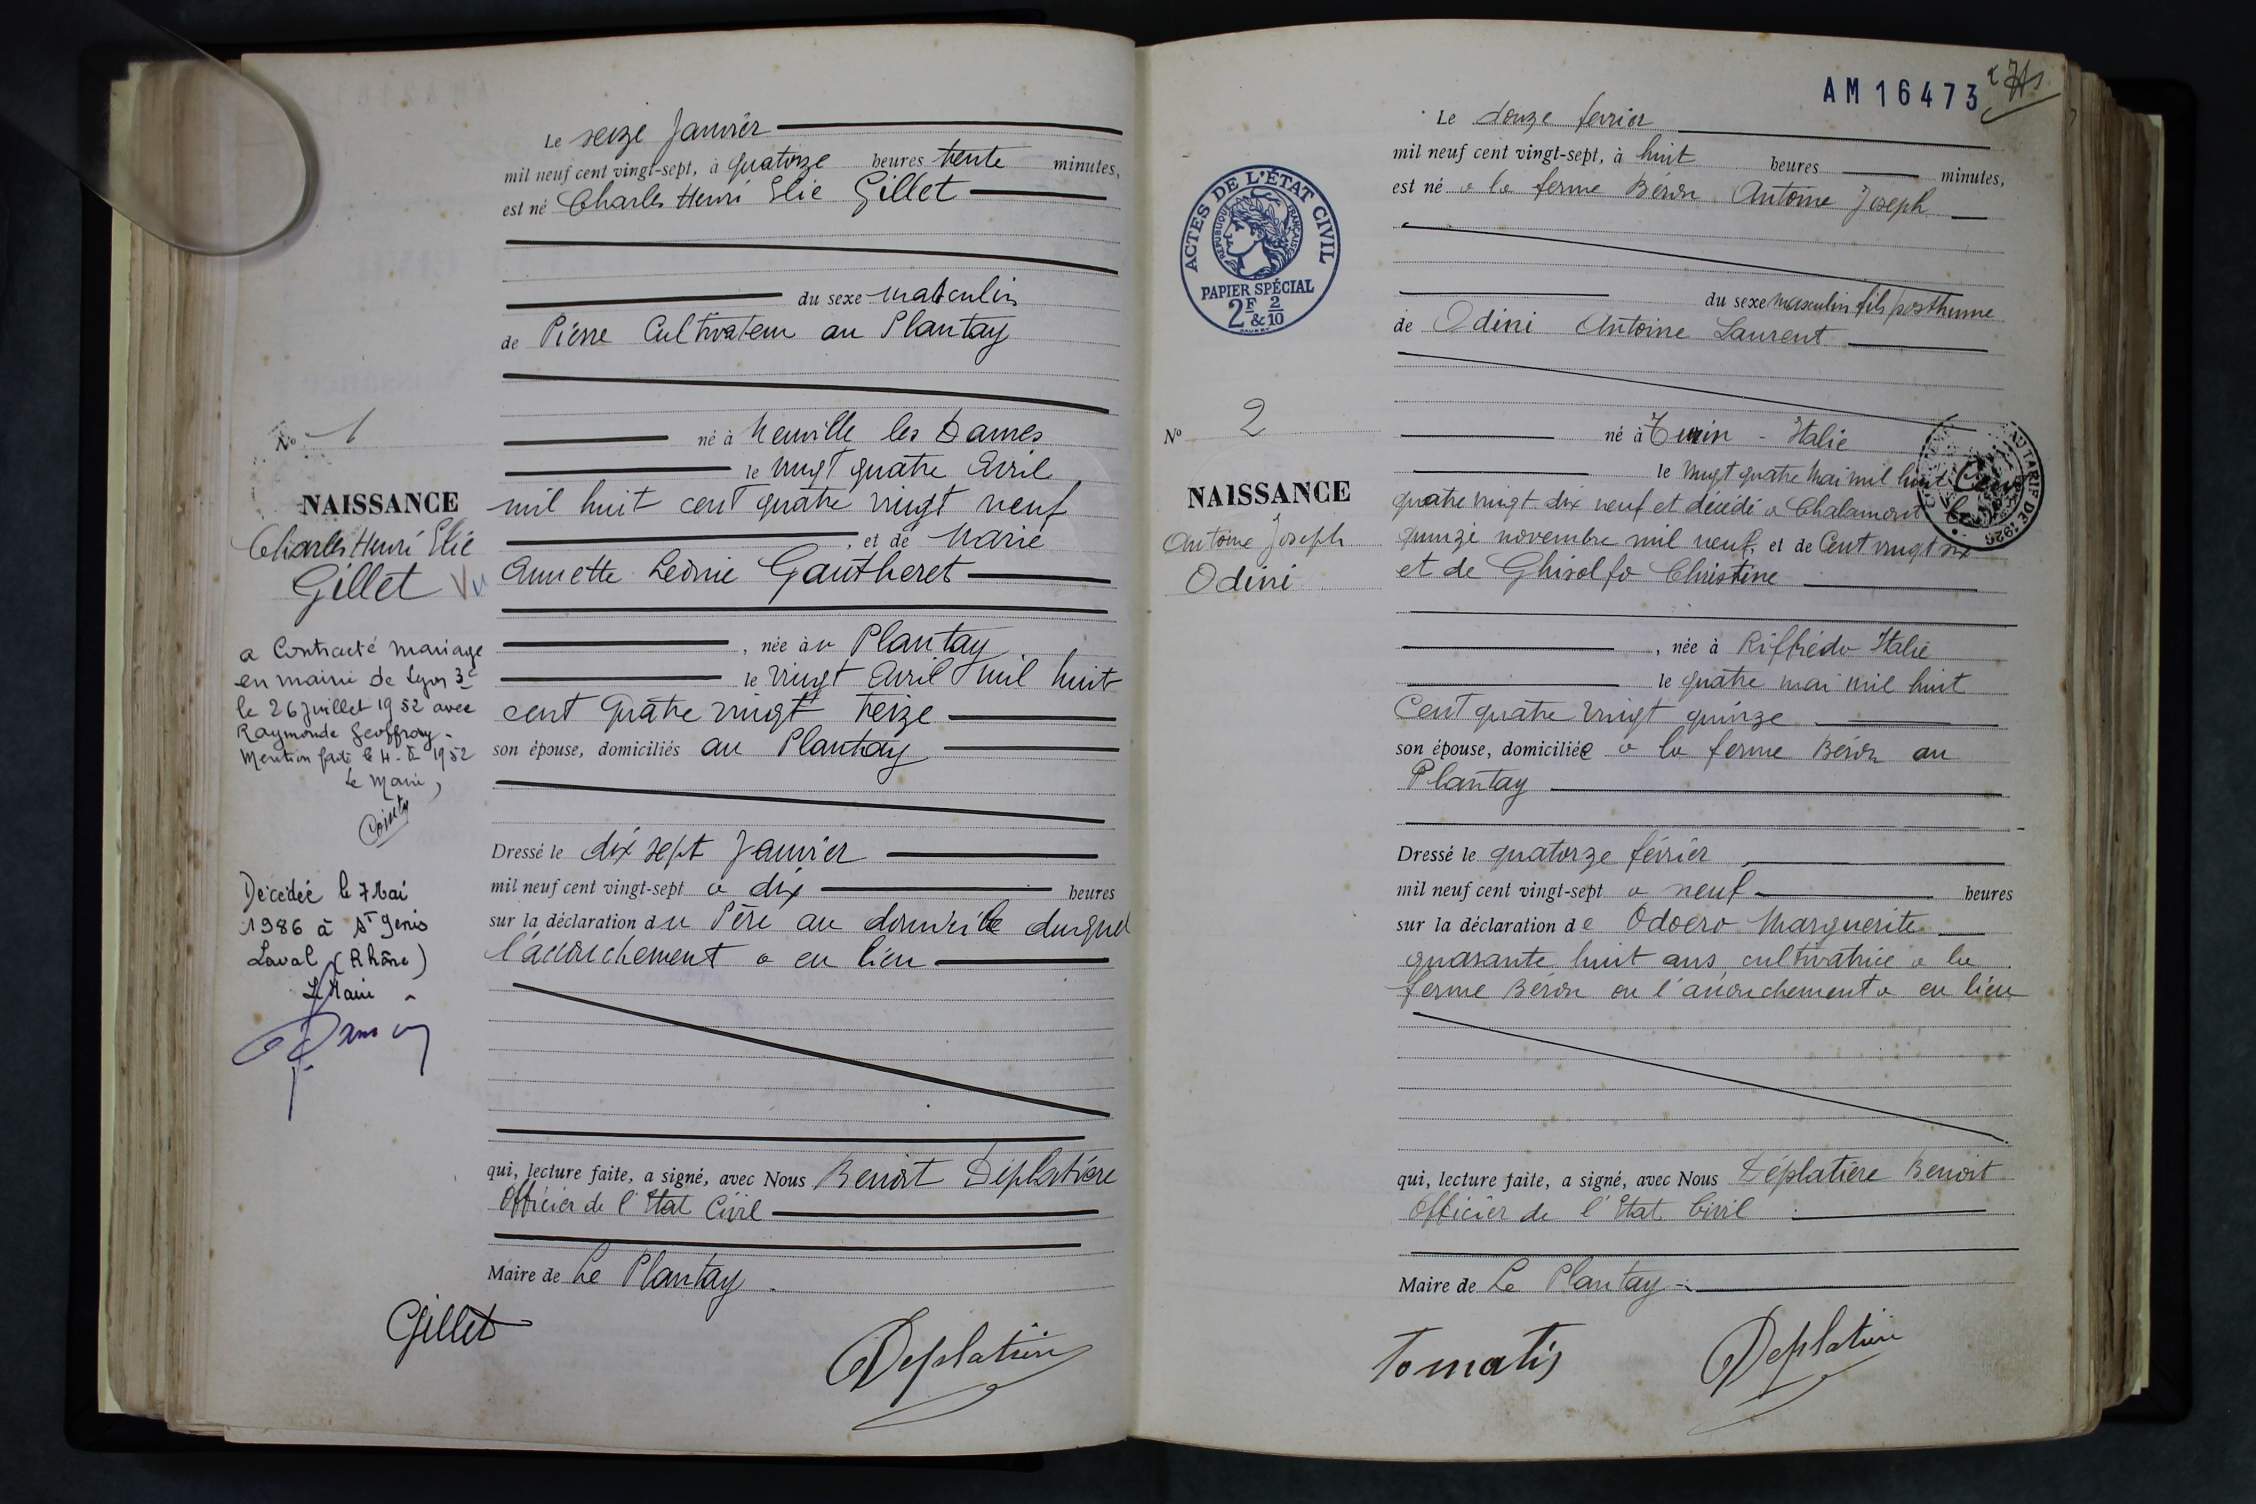 Le seize Janvier
mil neuf cent vingt-sept, à quatorze heures trente minutes,
est né Charles Henri Elie Gillet
du sexe masculin
de Pierre Cultivateur au Plantay
né à Neuville les Dames
le vingt quatre Avril
mil huit cent quatre vingt neuf
, et de Marie
Annette Léonie Gautheret
, née au Plantay
le vingt Avril mil huit
cent quatre vingt treize
son épouse, domiciliés au Plantay
Dressé le dix sept Janvier
mil neuf cent vingt-sept à dix heures
sur la déclaration du Père au domicile duquel
l'accouchement a eu lieu
qui, lecture faite, a signé, avec Nous Benoit Déplatière
Officier de l'Etat Civil
Maire de Le Plantay
Gillet
Deplatière
No 1
NAISSANCE
Charles Henri Elie
Gillet Vu
a Contracté mariage
en mairie de Lyon 3e
le 26 Juillet 1952 avec
Raymonde Geoffray.
Mention faite le 1952
Le Maire,
Décédée le 7 Mai
1986 à St Genis
Laval (Rhône)
Le Maire
AM16473
Le douze fevrier
mil neuf cent vingt-sept, à huit heures minutes,
est né a la ferme Béron Antoine Joseph
du sexe masculin fils posthume
de Odini Antoine Laurent
né à Turin - Italie
le vingt quatre Mai mil huit Cent
quatre vingt dix neuf et décédé a Chalamont le
quinze novembre mil neuf, et de Cent vingt six
et de Ghisolfo Christine
, née à Riffredo Italie
le quatre mai mil huit
Cent quatre vingt quinze
son épouse, domiciliée a la ferme Béron au
Plantay
Dressé le quatorze février
mil neuf cent vingt-sept a neuf heures
sur la déclaration de Odoero Marguerite
quarante huit ans, cultivatrice a la
ferme Béron ou l'accouchement a eu lieu
qui, lecture faite, a signé, avec Nous Déplatière Benoit
Officier de l'Etat Civil
Maire de Le Plantay
Tomatis
Deplatière
ACTES DE L'ÉTAT CIVIL
RÉPUBLIQUE FRANÇAISE
PAPIER SPÉCIAL
2F & 2/10
No 2
NAISSANCE
Antoine Joseph
Odini
AU TARIF DE 1926